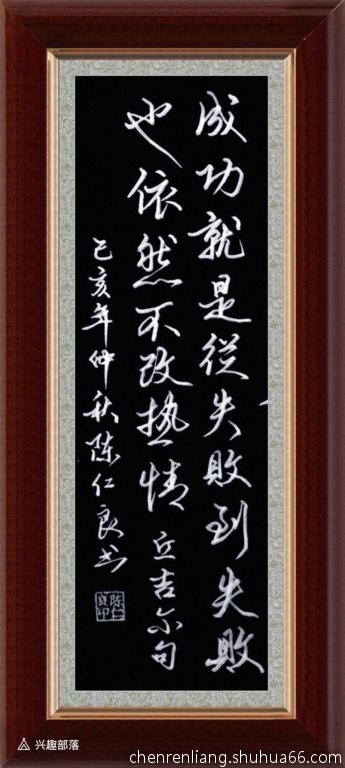 成功就是從失敗到失敗
也依然不改熱情 丘吉尔句
己亥年仲秋陈仁良书
陈仁良印
兴趣部落
chenrenliang.shuhua66.com